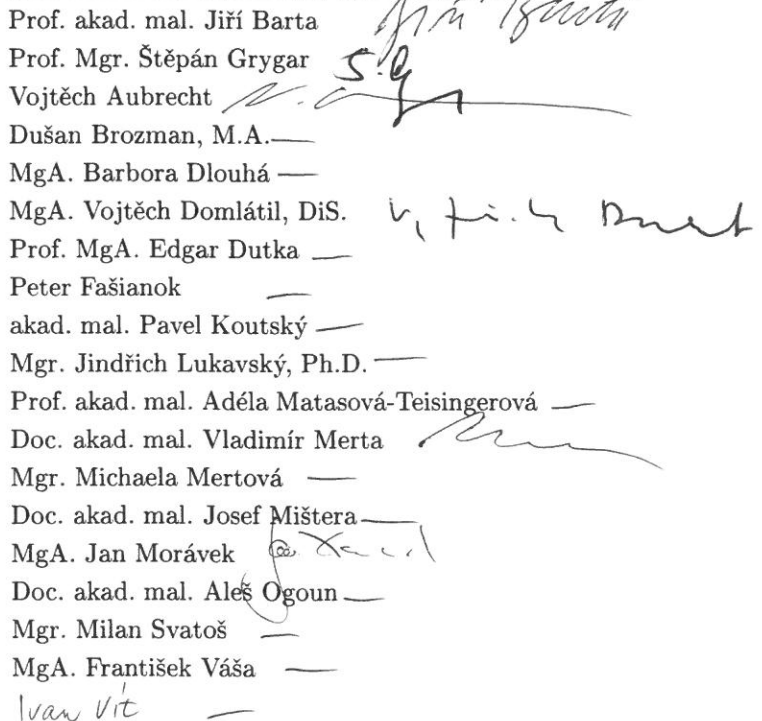 Prof. akad. mal. Jiří Barta Jiří Barta
Prof. Mgr. Štěpán Grygar S.G
Vojtěch Aubrecht
Dušan Brozman, M.A. —
MgA. Barbora Dlouhá —
MgA. Vojtěch Domlátil, DiS.
Prof. MgA. Edgar Dutka —
Peter Fašianok —
akad. mal. Pavel Koutský —
Mgr. Jindřich Lukavský, Ph.D. —
Prof. akad. mal. Adéla Matasová-Teisingerová —
Doc. akad. mal. Vladimír Merta
Mgr. Michaela Mertová —
Doc. akad. mal. Josef Mištera —
MgA. Jan Morávek
Doc. akad. mal. Aleš Ogoun —
Mgr. Milan Svatoš —
MgA. František Váša —
Ivan Vít —